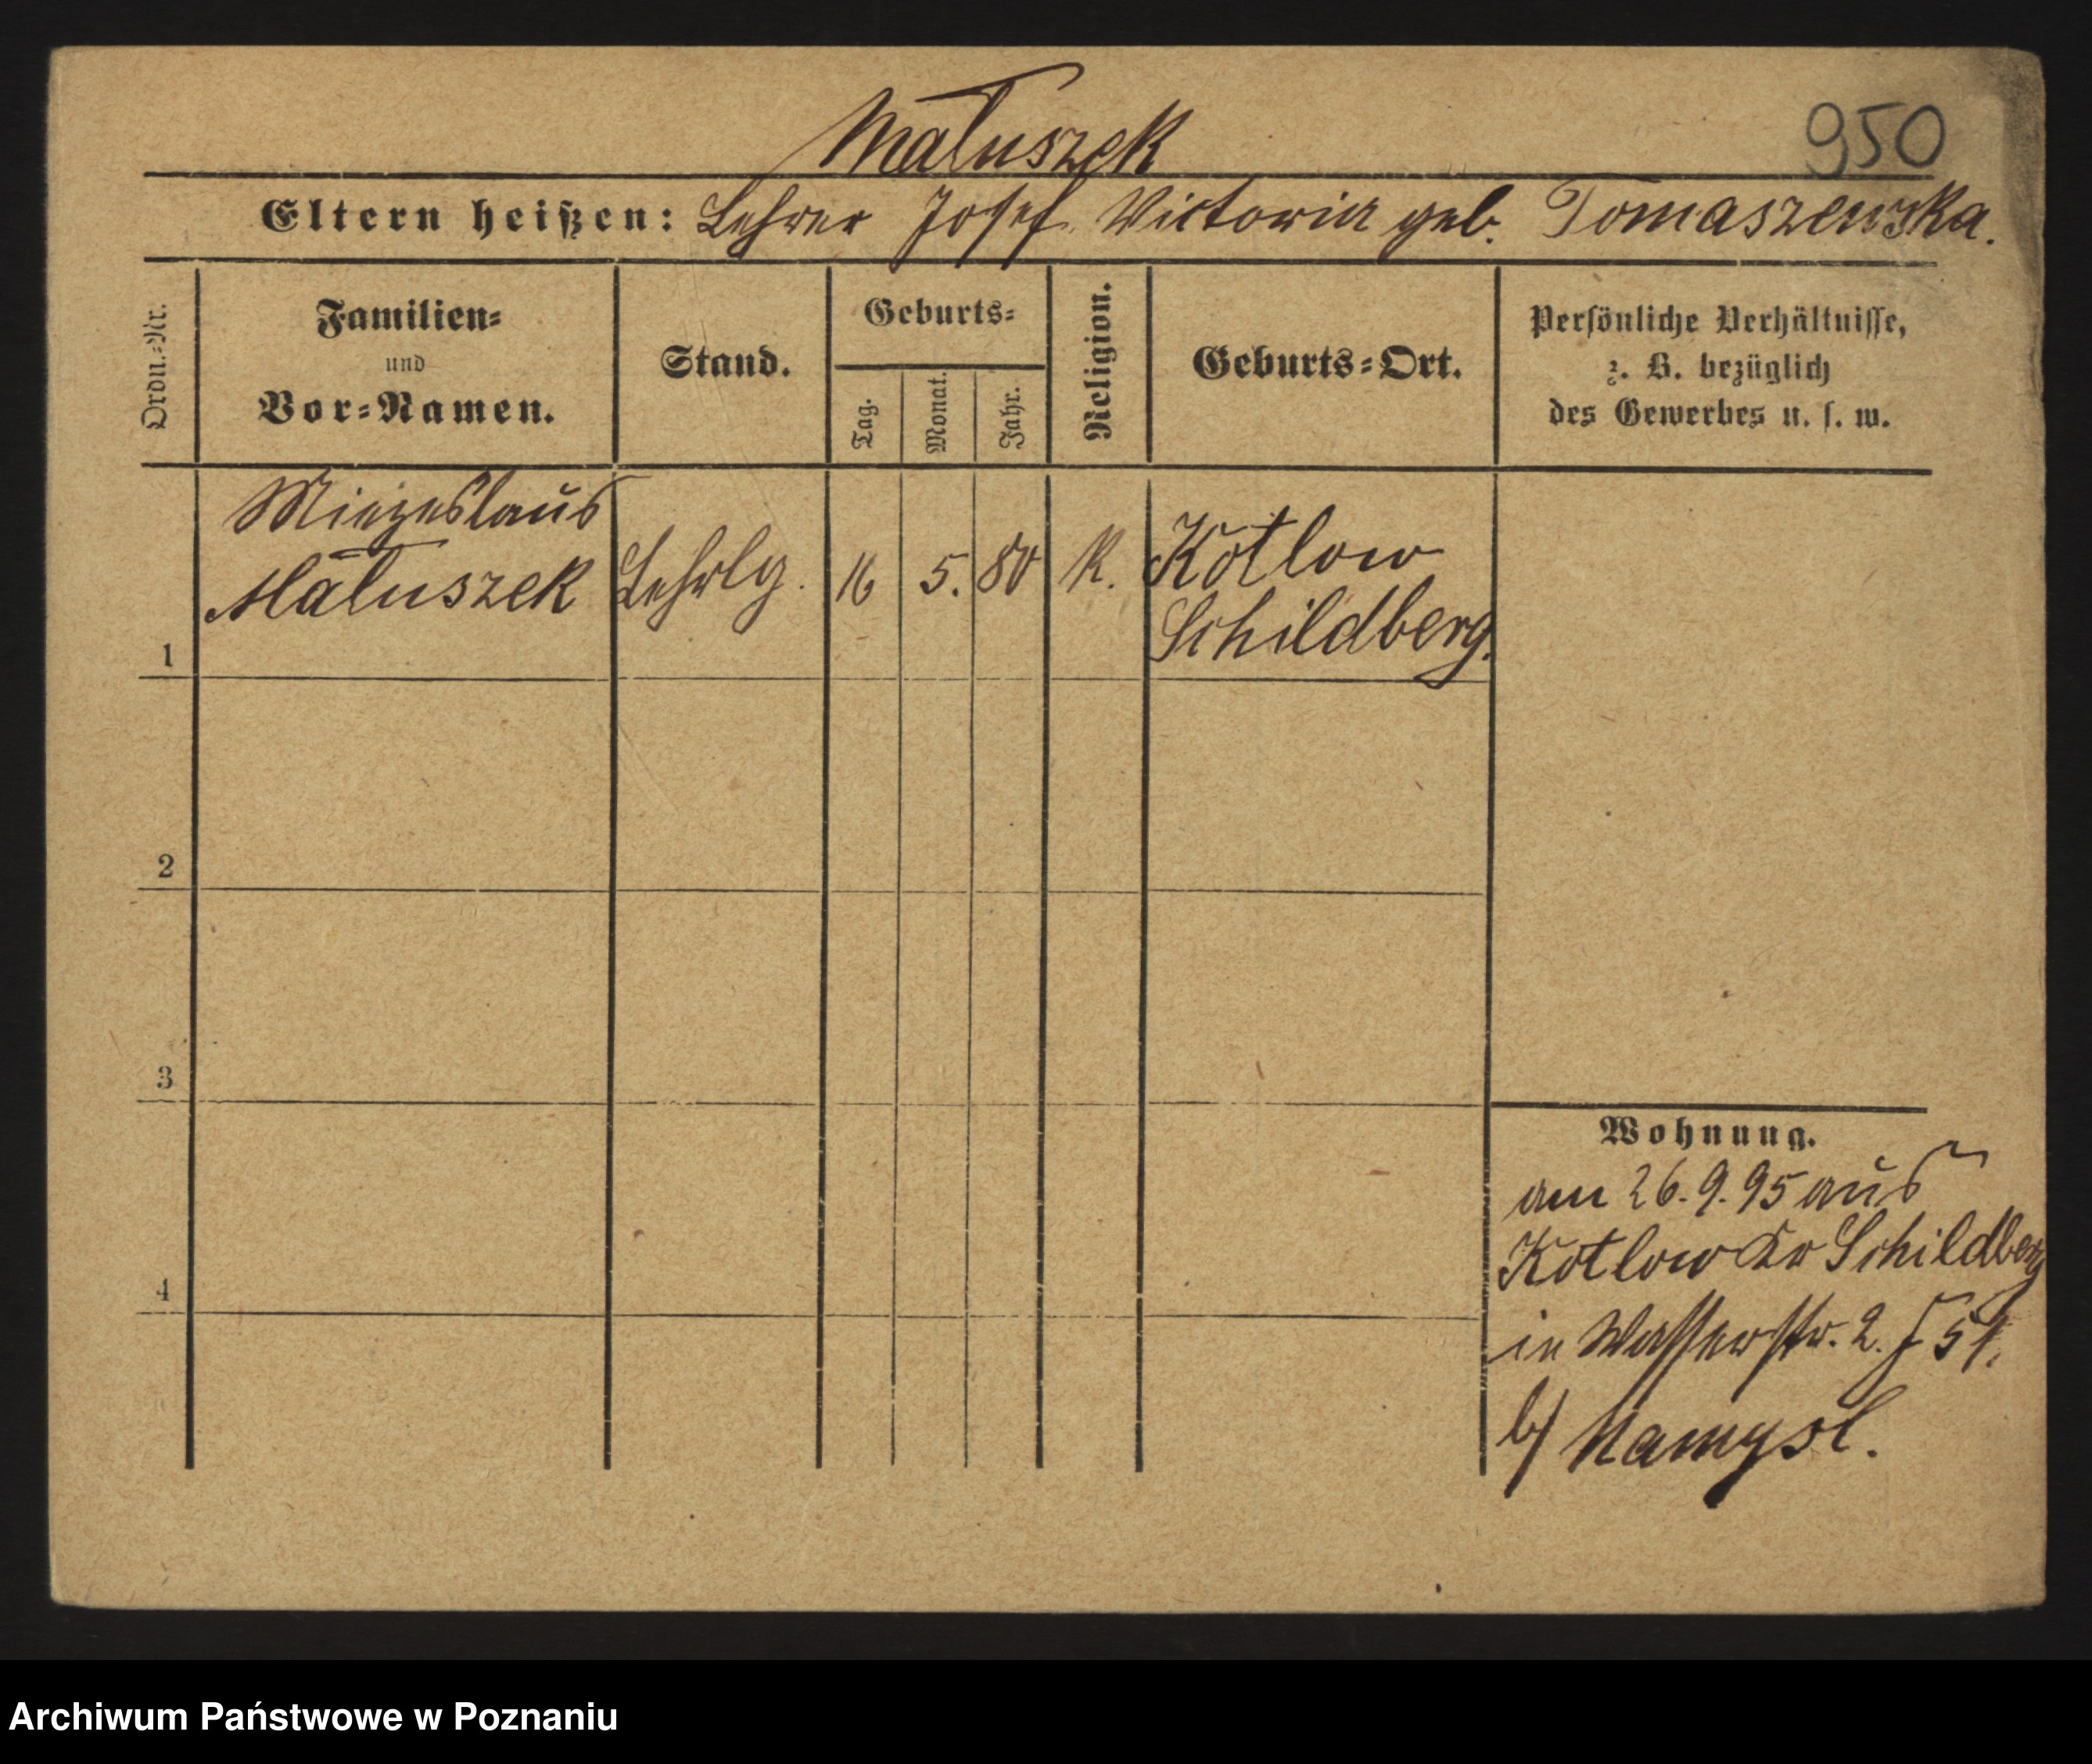 Matuszek
950
Eltern heißen: Lehrer Josef Victoria geb. Tomaszewska.
Ordn.-Nr.
Familien-
und
Vor-Namen.
Stand.
Geburts-
Tag.
Monat.
Jahr.
Religion.
Geburts-Ort.
Persönliche Verhältnisse,
z. B. bezüglich
des Gewerbes u. s. w.
Miezeslaus
Matuszek
Lehrlg.
16
5.
80
K.
Kotlow
Schildberg.
1
2
3
4
Wohnung.
am 26.9.95 aus
Kotlow Kr Schildberg
in Wasserstr. 2.
b/ Namysl.
Archiwum Państwowe w Poznaniu